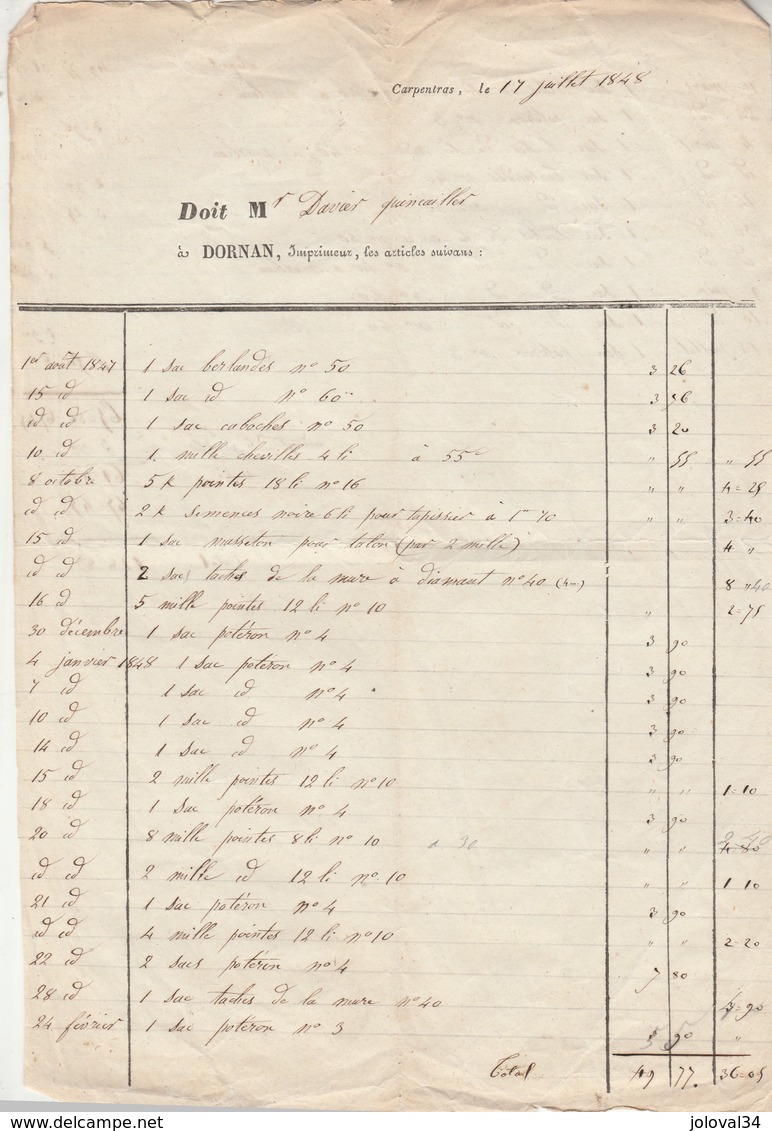 Carpentras, le 17 juillet 1848
Doit Mr Davier quincailler
à DORNAN, Imprimeur, les articles suivans :
1er août 1847 1 sac berlandes no 50 3 26
15 id 1 sac id no 60 3
id id 1 sac caboches no 50 3 20
10 id 1 mille chevilles 4 li à 55c " 55 " 55
8 octobre 5 k pointes 18 li no 16 " " 4=25
id id 2 k semences noire 6 li pour tapissier à 1" 70 " " 3=40
15 id 1 sac pour talon (par 2 mille) 4 "
id id 2 sacs taches de la mure à diamant no 40 8 " 40
16 id 5 mille pointes 12 li no 10 " 2=75
30 décembre 1 sac potéron no 4 3 90
4 janvier 1848 1 sac potéron no 4 3 90
7 id 1 sac id no 4 3 90
10 id 1 sac id no 4 3 90
14 id 1 sac id no 4 3 90
15 id 2 mille pointes 12 li no 10 " " 1=10
18 id 1 sac potéron no 4 3 90
20 id 8 mille pointes 8 li no 10 a 30 " " 4=80 2 40
id id 2 mille id 12 li no 10 " " 1 10
21 id 1 sac potéron no 4 3 90
id id 4 mille pointes 12 li no 10 " " 2=20
22 id 2 sacs potéron no 4 7 80
28 id 1 sac taches de la mure no 40 =90
24 février 1 sac potéron no 3 90 "
Total 49 77. 36=05
www.delcampe.net
joloval34